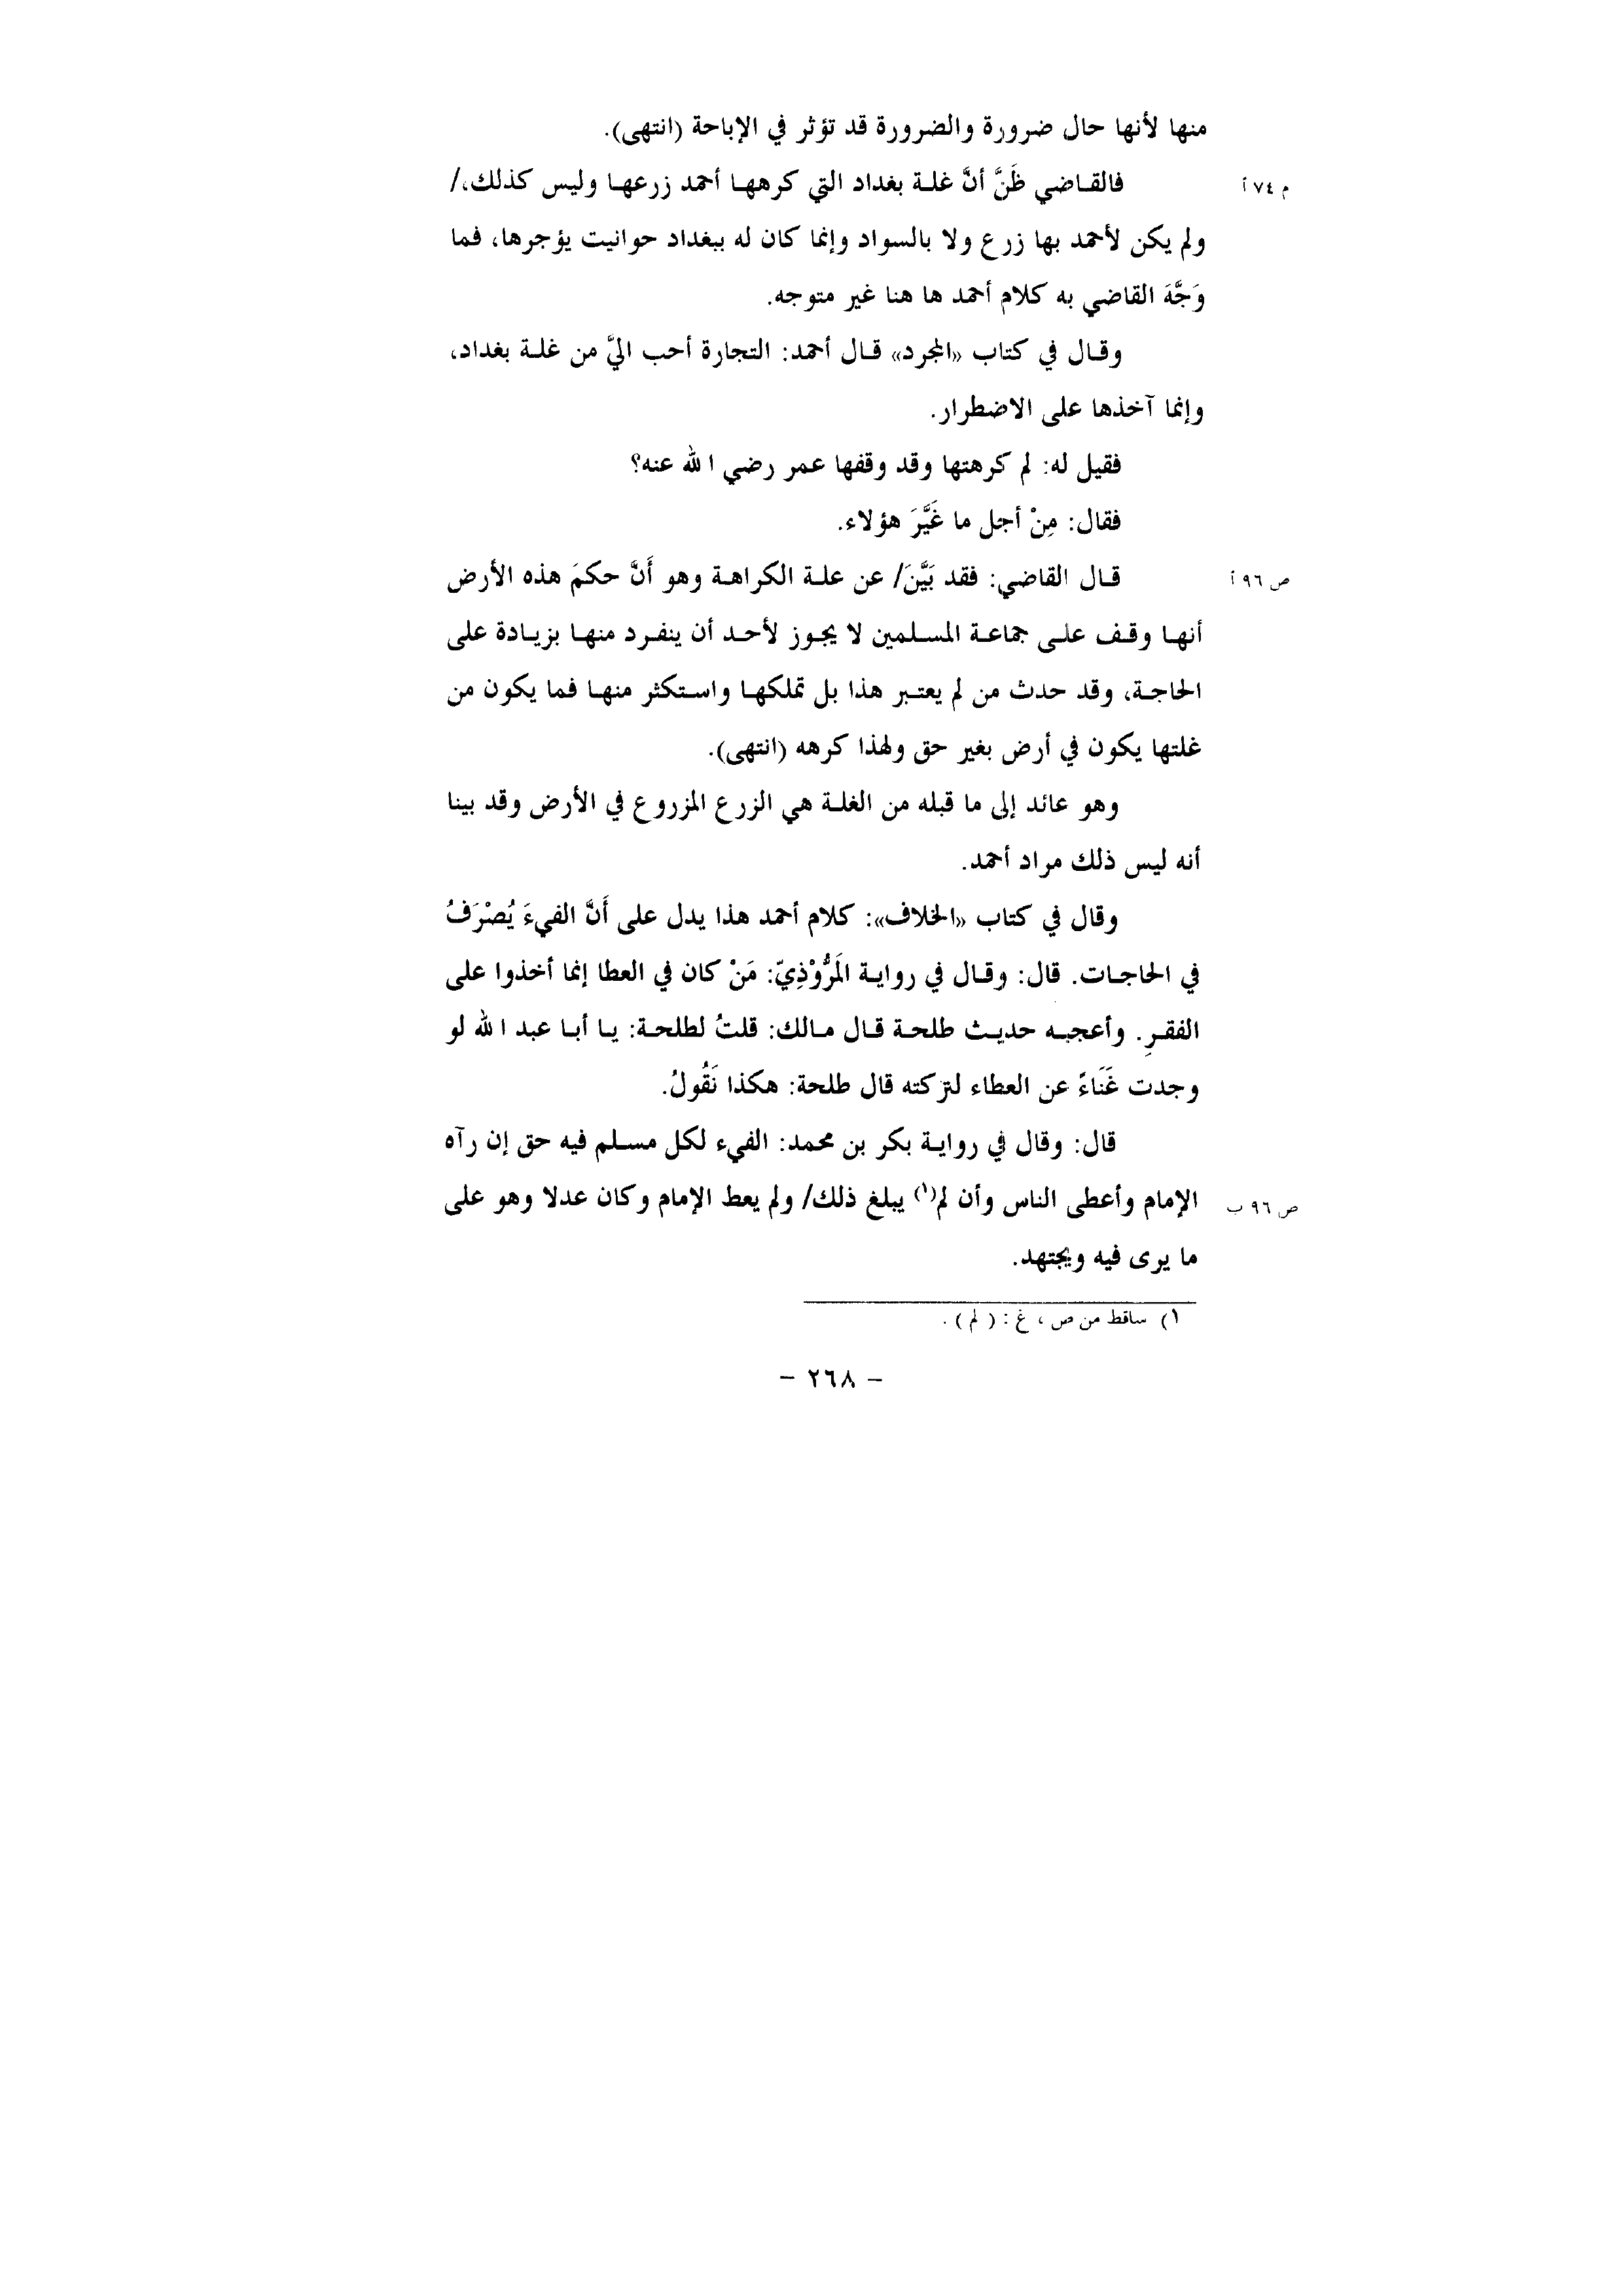 منها لأنها حال ضرورة والضرورة قد تؤثر في الإباحة (انتهى).
فالقاضي ظَنَّ أنَّ غلة بغداد التي كرهها أحمد زرعها وليس كذلك،/
م ٧٤ أ
ولم يكن لأحمد بها زرع ولا بالسواد وإنما كان له ببغداد حوانيت يؤجرها، فما
وَجَّهَ القاضي به كلام أحمد ها هنا غير متوجه.
وقال في كتاب «المجرد» قال أحمد: التجارة أحب اليَّ من غلة بغداد،
وإنما آخذها على الاضطرار.
فقيل له: لم كرهتها وقد وقفها عمر رضي الله عنه؟
فقال: مِنْ أجل ما غَيَّرَ هؤلاء.
قال القاضي: فقد بَيَّنَ/ عن علة الكراهة وهو أَنَّ حكمَ هذه الأرض
ص ٩٦ أ
أنها وقف على جماعة المسلمين لا يجوز لأحد أن ينفرد منها بزيادة على
الحاجة، وقد حدث من لم يعتبر هذا بل تملكها واستكثر منها فما يكون من
غلتها يكون في أرض بغير حق ولهذا كرهه (انتهى).
وهو عائد إلى ما قبله من الغلة هي الزرع المزروع في الأرض وقد بينا
أنه ليس ذلك مراد أحمد.
وقال في كتاب «الخلاف»: كلام أحمد هذا يدل على أَنَّ الفيءَ يُصْرَفُ
في الحاجات. قال: وقال في رواية المَرُّوْذِيّ: مَنْ كان في العطا إنما أخذوا على
الفقرِ. وأعجبه حديث طلحة قال مالك: قلتُ لطلحة: يا أبا عبد الله لو
وجدت غَنَاءً عن العطاء لتركته قال طلحة: هكذا نَقُولُ.
قال: وقال في رواية بكر بن محمد: الفيء لكل مسلم فيه حق إن رآه
الإمام وأعطى الناس وأن لم(١) يبلغ ذلك/ ولم يعط الإمام وكان عدلا وهو على
ص ٩٦ ب
ما يرى فيه ويجتهد.
١) ساقط من ص ، غ : ( لم ) .
– ٢٦٨ –